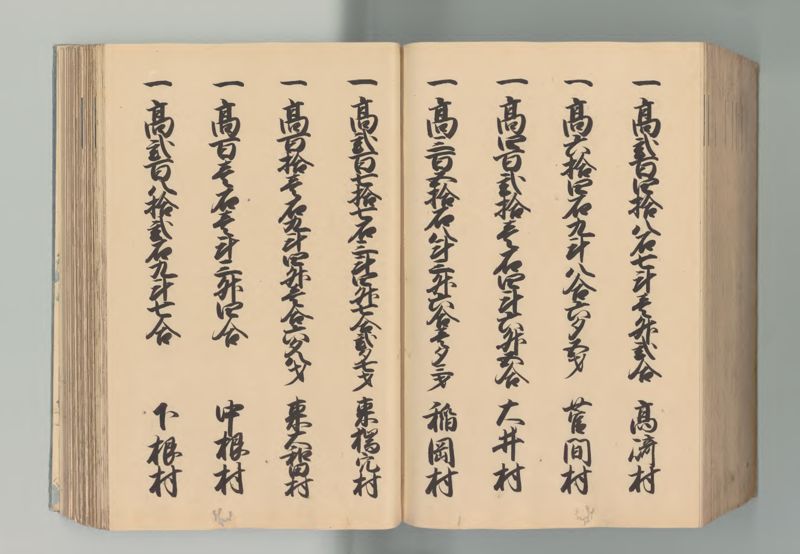 一 高弐百四拾八石七斗壱升弐合 高済村
一 高六拾四石九斗八合六夕五才 菅間村
一 高四百弐拾壱石四斗六升五合 大井村
一 高三百五拾石八斗三升六合壱夕三才 稲岡村
一 高弐百一拾七石三斗四升七合弐夕七才 東橘穴村
一 高百拾壱石九斗四升壱合六夕八才 東大和田村
一 高百壱石壱斗三升四合 中根村
一 高弐百八拾弐石九斗七合 下根村